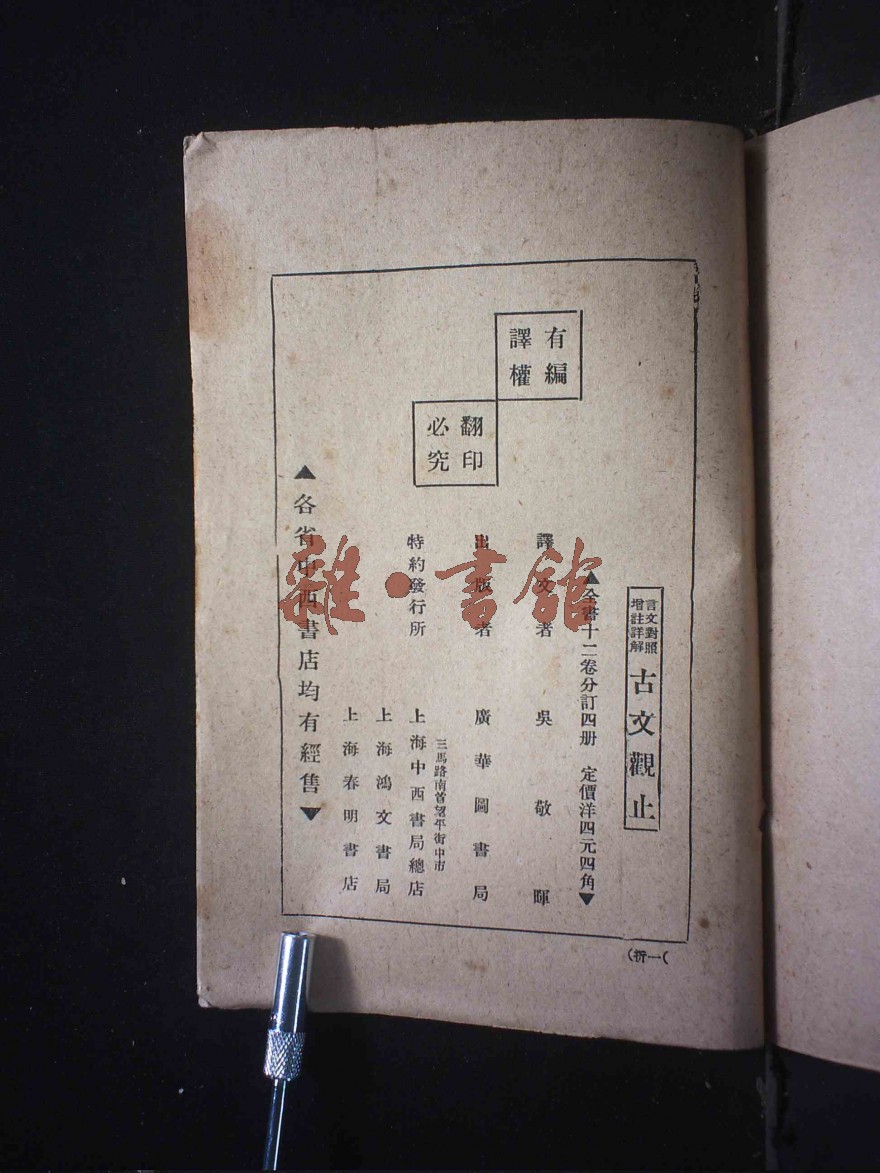 言文對照
增註詳解
古文觀止
▲全書十二卷分訂四册 定價洋四元四角▼
有編譯權
翻印必究
譯文者 吳敬暉
出版者 廣華圖書局
特約發行所
三馬路南首望平街中市
上海中西書局總店
上海鴻文書局
上海春明書店
▲各省中西書店均有經售▼
雜·書館